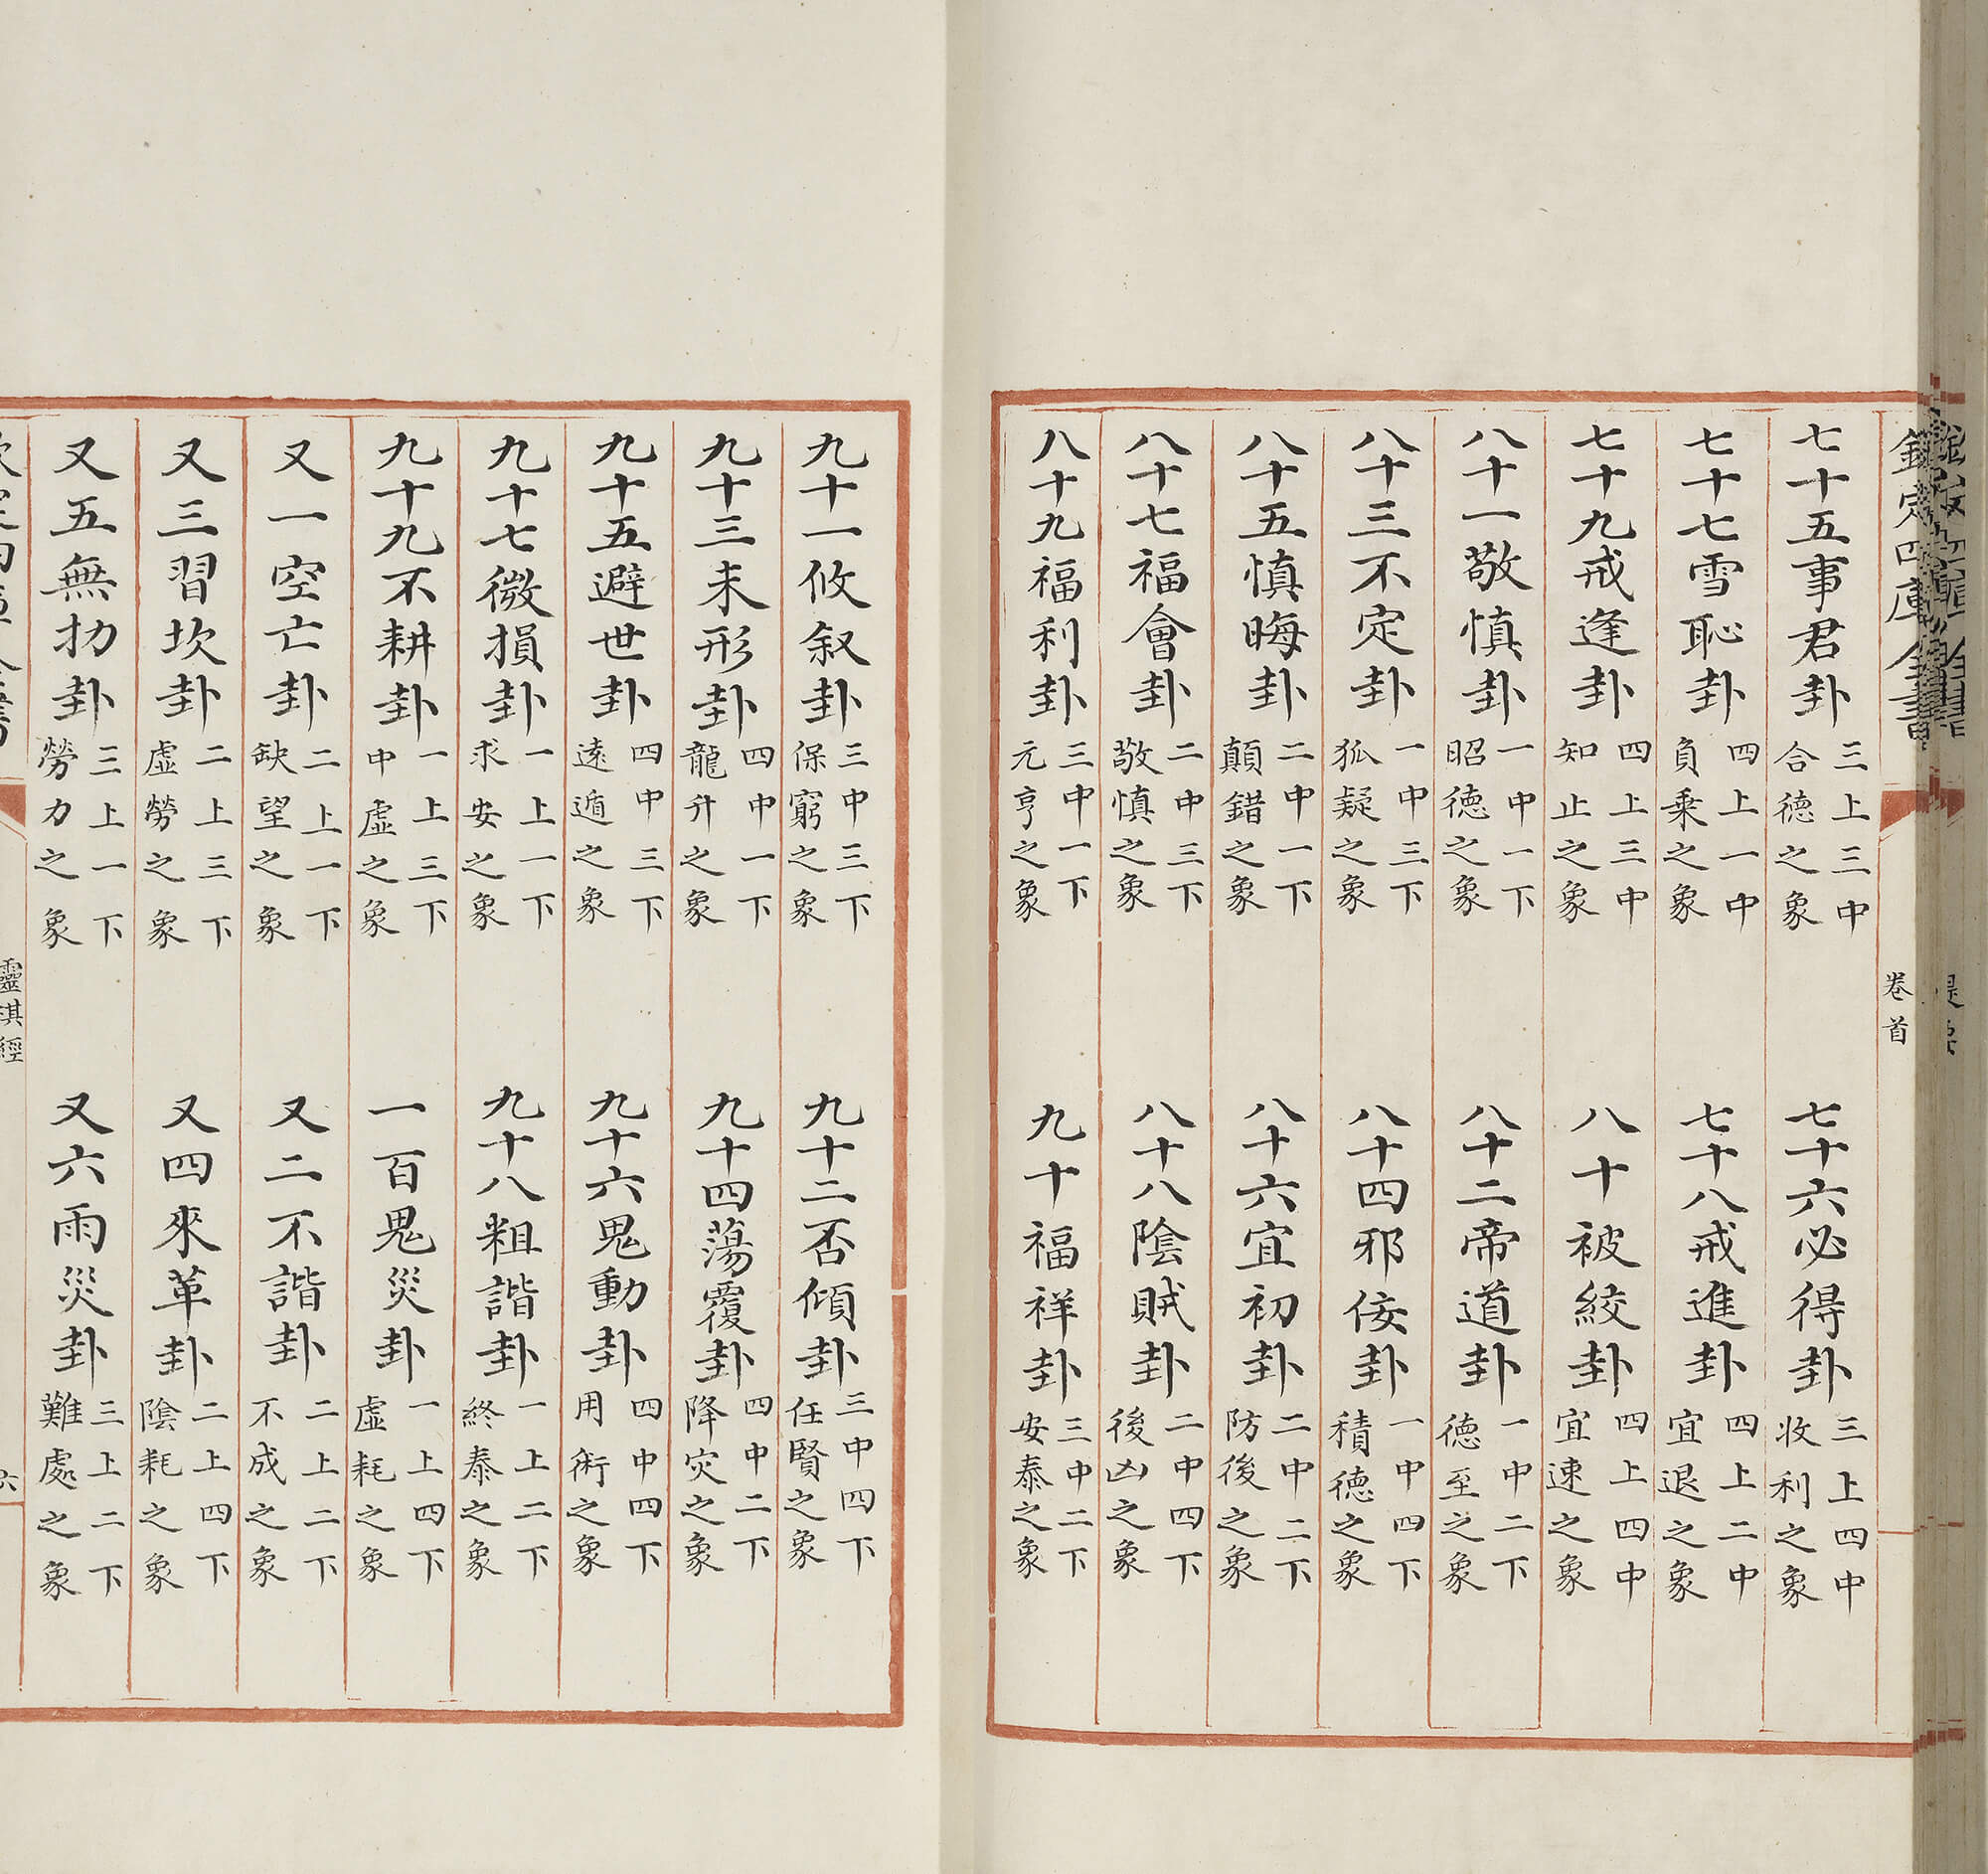 欽定四庫全書
卷首
七十五事君卦 三上三中 合徳之象 七十六必得卦 三上四中 收利之象
七十七雪恥卦 四上一中 負乘之象 七十八戒進卦 四上二中 宜退之象
七十九戒逢卦 四上三中 知止之象 八十被絞卦 四上四中 宜速之象
八十一敬慎卦 一中一下 昭徳之象 八十二帝道卦 一中二下 徳至之象
八十三不定卦 一中三下 狐疑之象 八十四邪佞卦 一中四下 積徳之象
八十五慎晦卦 二中一下 顛錯之象 八十六宜初卦 二中二下 防後之象
八十七福會卦 二中三下 敬慎之象 八十八陰賊卦 二中四下 後凶之象
八十九福利卦 三中一下 元亨之象 九十福祥卦 三中二下 安泰之象
九十一攸叙卦 三中三下 保窮之象 九十二否傾卦 三中四下 任賢之象
九十三未形卦 四中一下 龍升之象 九十四蕩覆卦 四中二下 降灾之象
九十五避世卦 四中三下 逺遁之象 九十六鬼動卦 四中四下 用術之象
九十七微損卦 一上一下 求安之象 九十八粗諧卦 一上二下 終泰之象
九十九不耕卦 一上三下 中虛之象 一百鬼災卦 一上四下 虛耗之象
又一空亡卦 二上一下 缺望之象 又二不諧卦 二上二下 不成之象
又三習坎卦 二上三下 虛勞之象 又四來革卦 二上四下 陰耗之象
又五無扐卦 三上一下 勞力之象 又六雨災卦 三上二下 難處之象
靈棋經
六